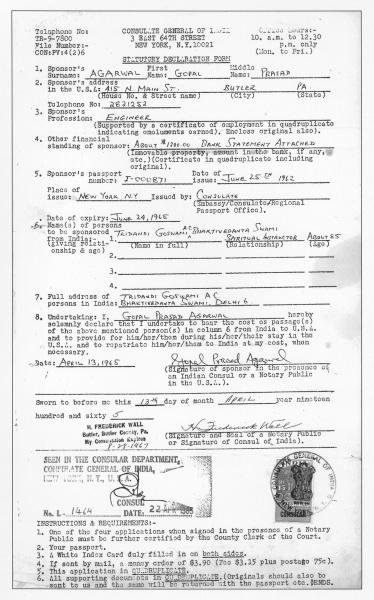 Telephone No: CONSULATE GENERAL OF INDIA Office Hours:-
TR-9-7800 3 EAST 64TH STREET 10. a.m. to 12.30
File Number:- NEW YORK, N.Y.10021 p.m. only
CON:PV:4(2)6 (Mon. to Fri.)
STATUTORY DECLARATION FORM
1. Sponsor's First Middle
Surname: AGARWAL Name: GOPAL Name: PRASAD
2. Sponsor's address
in the U.S.A: 415 N. MAIN ST. BUTLER PA
(House No. & Street name) (City) (State)
Telephone No: 2821252
3. Sponsor's
Profession: ENGINEER
(Supported by a certificate of employment in quadruplicate
indicating emoluments earned. Enclose original also).
4. Other financial
standing of sponsor: ABOUT $1200.00 BANK STATEMENT ATTACHED
(Immovable property, amount in the bank, if any,
etc.)(Certificate in quadruplicate including
original).
5. Sponsor's passport Date of
number: J-000871 issue: JUNE 25TH 1962
Place of
issue: NEW YORK N.Y Issued by: CONSULATE
(Embassy/Consulate/Regional
Passport Office).
Date of expiry: JUNE 24, 1965
6. Name(s) of persons
to be sponsored TRIDANDI GOSWAMI AC BHAKTIVEDANTA SWAMI
from India:- 1. SPIRITUAL INSTRUCTOR ABOUT 65
(giving relation- (Name in full) (Relationship) (Age)
ship & age)
2.
3.
4.
7. Full address of TRIDANDI GOSWAMI A C
persons in India: BHAKTIVEDANTA SWAMI, DELHI 6
8. Undertaking: I, GOPAL PRASAD AGARWAL hereby
solemnly declare that I undertake to bear the cost os passage(s)
of the above mentioned person(s) in column 6 from India to U.S.A.
and to provide for him/her/them during his/her/their stay in the
U.S.A. and to repatriate him/her/them to India at my cost, when
necessary.
Date: APRIL 13, 1965 Gopal Prasad Agarwal
(Signature of sponsor in the presence of
an Indian Consul or a Notary Public
in the U.S.A.).
Sworn to before me this 13th day of month APRIL year nineteen
hundred and sixty 5
H. FREDERICK WALL H. Frederick Wall
Butler, Butler County, Pa. (Signature and Seal of a Notary Public
My Commission Expires or Signature of Consul of India).
SEEN IN THE CONSULAR DEPARTMENT,
CONSULATE GENERAL OF INDIA,
NEW YORK, N.Y., U.S.A.
CONSUL
No. L - 1464 DATE: 22 APR 1965
INSTRUCTIONS & REQUIREMENTS:-
1. One of the four applications when signed in the presence of a Notary
Public must be further certified by the County Clerk of the Court.
2. Your passport.
3. A White Index Card duly filled in on both sides.
4. If sent by mail, a money order of $3.90 (Fee $3.15 plus postage 75¢).
5. This application in QUADRUPLICATE.
6. All supporting documents in QUADRUPLICATE.(Originals should also be
sent to us and the same will be returned with the passport etc.)